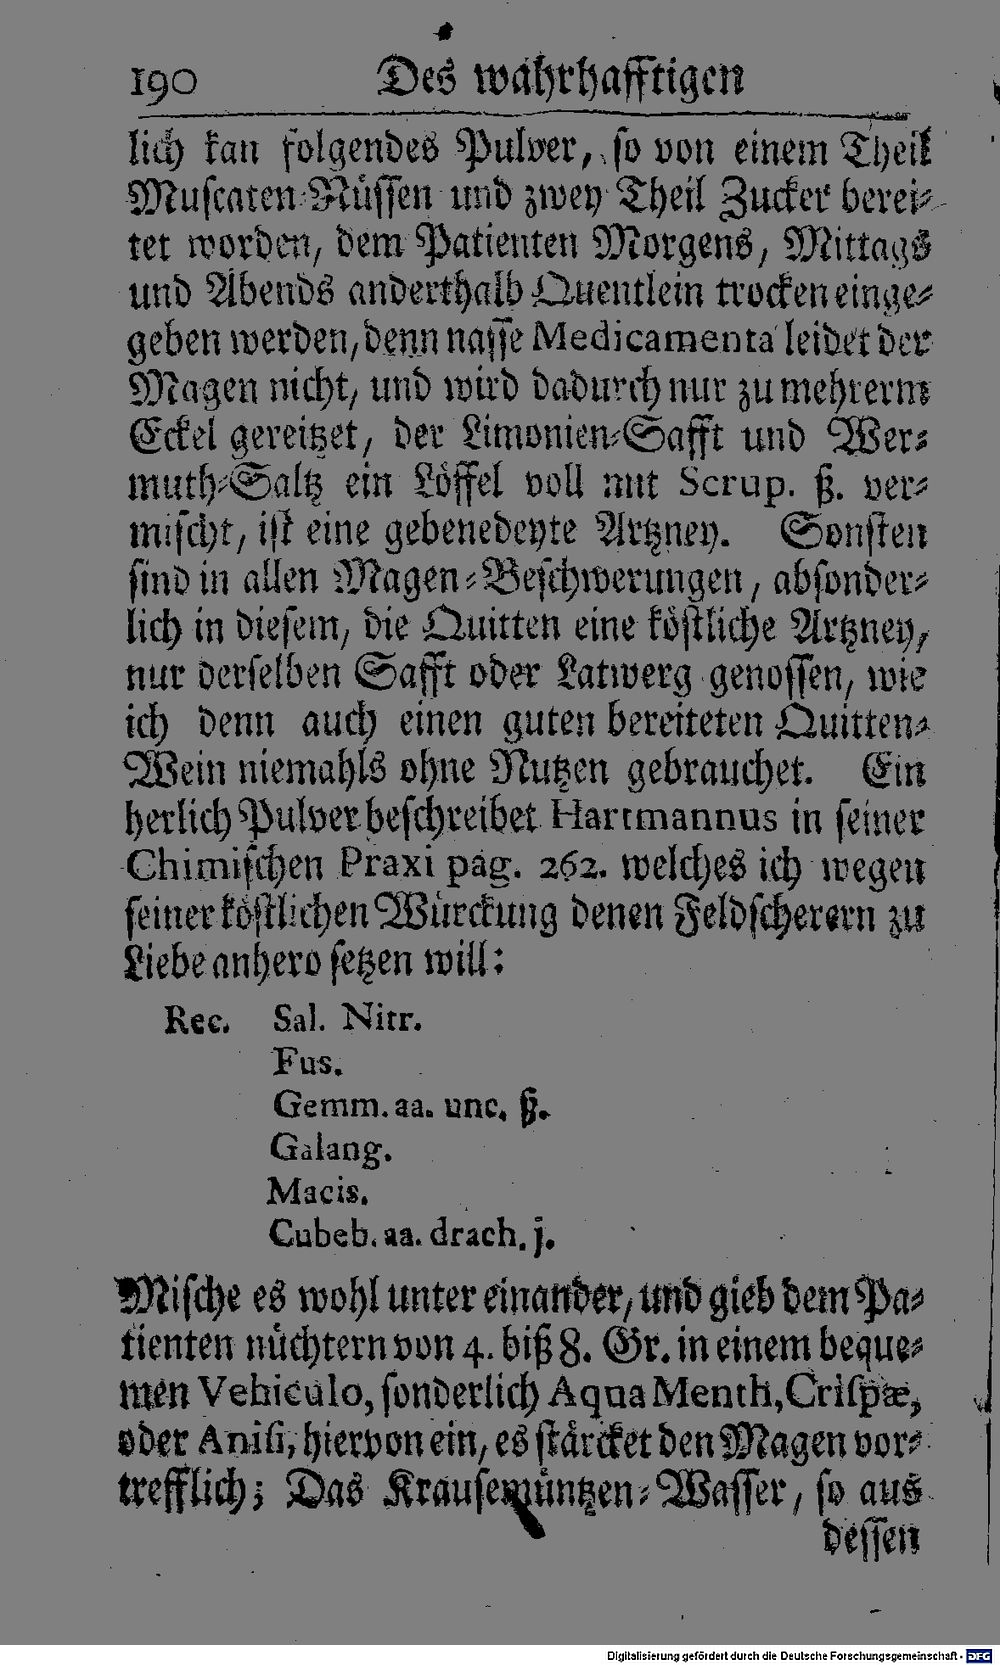 190 Des wahrhafftigen
lich kan folgendes Pulver, so von einem Theil
Muscaten-Nüssen und zwey Theil Zucker berei-
tet worden, dem Patienten Morgens, Mittags
und Abends anderthalb Quentlein trocken einge-
geben werden, denn nasse Medicamenta leidet der
Magen nicht, und wird dadurch nur zu mehrerm
Eckel gereitzet, der Limonien-Safft und Wer-
muth-Saltz ein Löffel voll mit Scrup. ß. ver-
mischt, ist eine gebenedeyte Artzney. Sonsten
sind in allen Magen-Beschwerungen, absonder-
lich in diesem, die Quitten eine köstliche Artzney,
nur derselben Safft oder Latwerg genossen, wie
ich denn auch einen guten bereiteten Quitten-
Wein niemahls ohne Nutzen gebrauchet. Ein
herlich Pulver beschreibet Hartmannus in seiner
Chimischen Praxi pag. 262. welches ich wegen
seiner köstlichen Würckung denen Feldscherern zu
Liebe anhero setzen will:
Rec. Sal. Nitr.
Fus.
Gemm. aa. unc. ß.
Galang.
Macis.
Cubeb. aa. drach. j.
Mische es wohl unter einander, und gieb dem Pa-
tienten nüchtern von 4. biß 8. Gr. in einem beque-
men Vehiculo, sonderlich Aqua Menth, Crispæ,
oder Anisi, hiervon ein, es stärcket den Magen vor-
trefflich; Das Krausemüntzen-Wasser, so aus
dessen
Digitalisierung gefördert durch die Deutsche Forschungsgemeinschaft - DFG